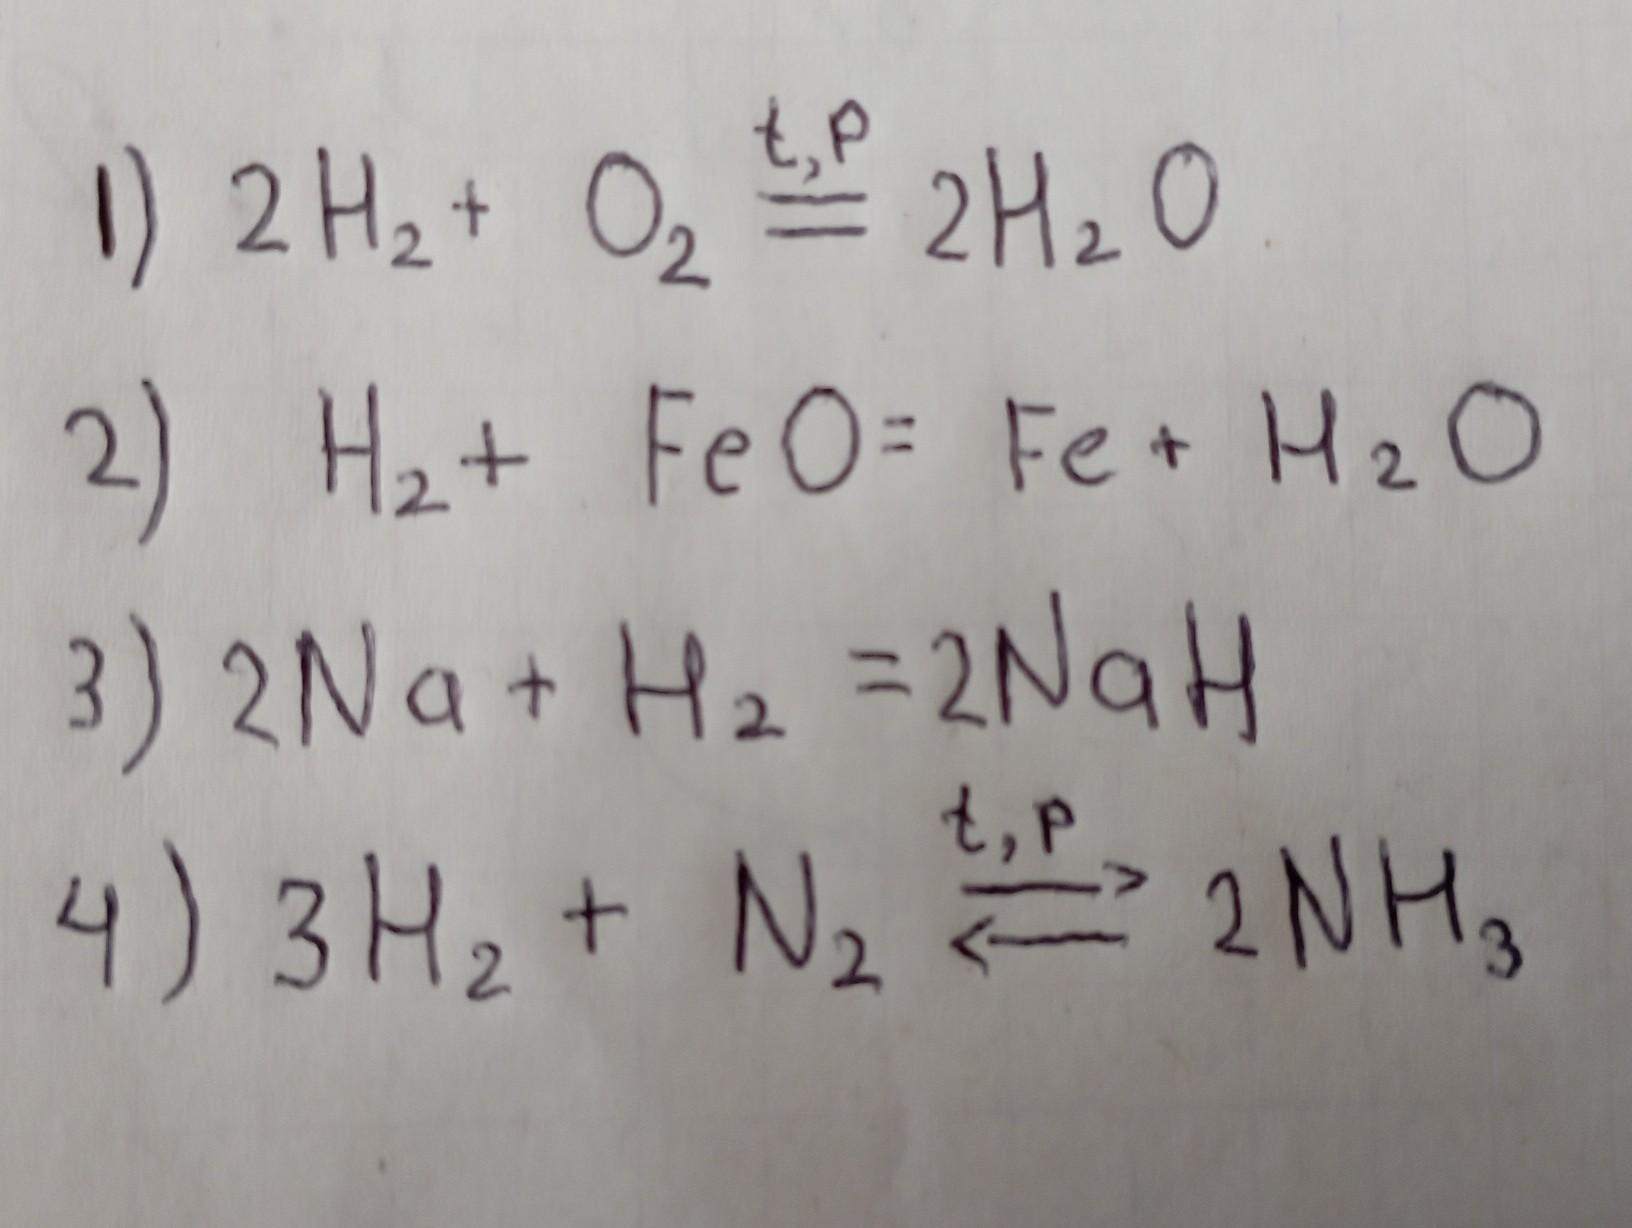 1) 2H₂ + O₂ =(t,p) 2H₂O
2) H₂ + FeO = Fe + H₂O
3) 2Na + H₂ = 2NaH
4) 3H₂ + N₂ ⇄(t,p) 2NH₃